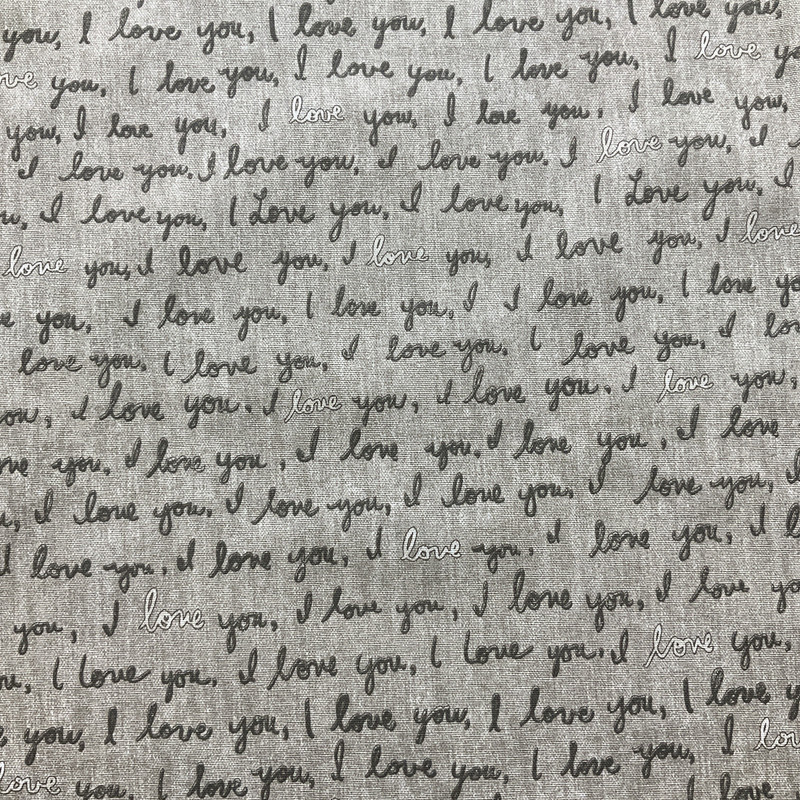 you, I love you, I love you, I love you, I love you,
love you, I love you, I love you, I love you, I love
you, I love you, I love you, I love you, I love you,
I love you. I love you, I love you. I love you, I
I love you, I Love you, I love you, I Love you, I
love you, I love you, I love you, I love you, I love
you, I love you, I love you, I I love you, I love
love you. I love you, I love you. I love you, I
I love you. I love you, I love you. I love you,
you. I love you, I love you. I love you, I love
I love you. I love you, I love you, I love you, I
I love you. I love you, I love you. I love you, I
you, I love you, I love you, I love you, I love
I love you, I love you, I love you. I love you,
you, I love you, I love you, I love you, I love
love you, I love you, I love you, I love you, I
I love